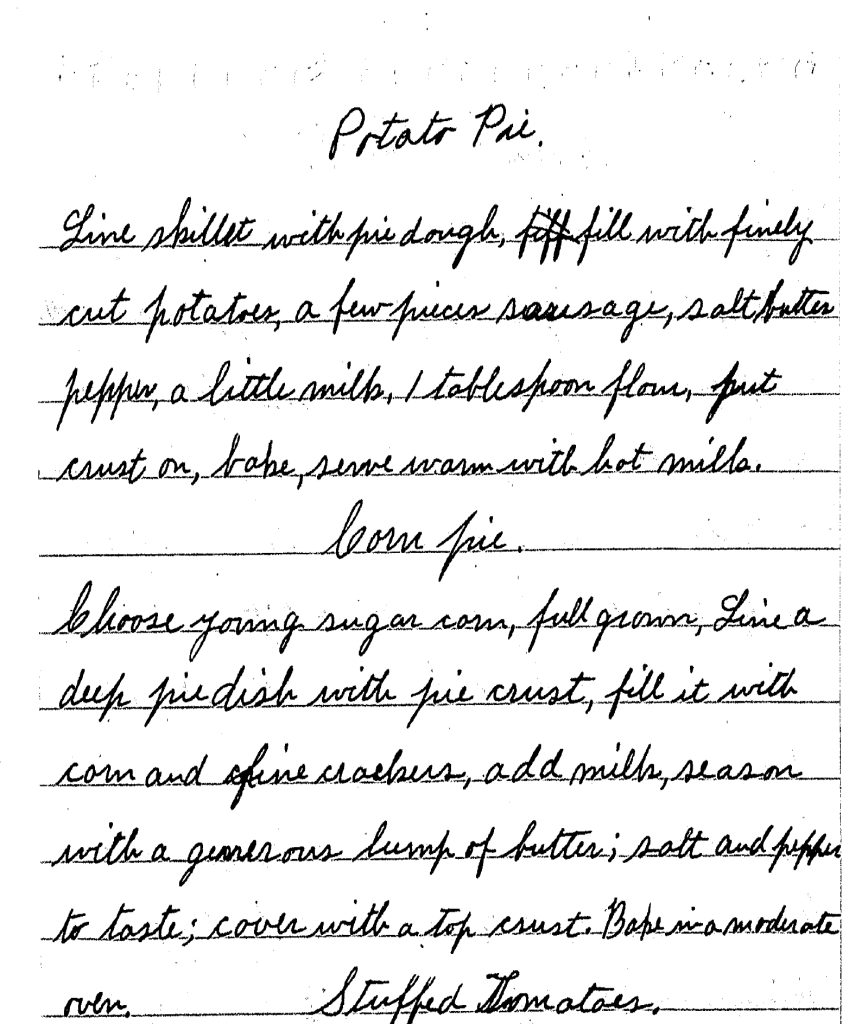 Potato Pie.
Line skillet with pie dough, fill with finely
cut potatoes, a few pieces sausage, salt, butter
pepper, a little milk, 1 tablespoon flour, put
crust on, bake, serve warm with hot milk.
Corn pie.
Choose young sugar corn, full grown, Line a
deep pie dish with pie crust, fill it with
corn and fine crackers, add milk, season
with a generous lump of butter; salt and pepper
to taste; cover with a top crust. Bake in a moderate
oven. Stuffed Tomatoes.